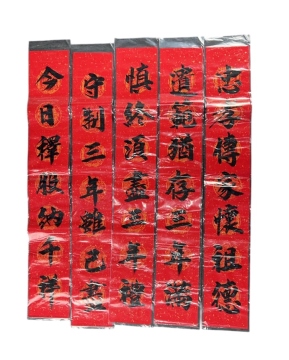 忠孝傳家懷祖德
遺範猶存三年滿
慎終湏盡三年禮
守制三年雖已盡
今日擇服納千祥